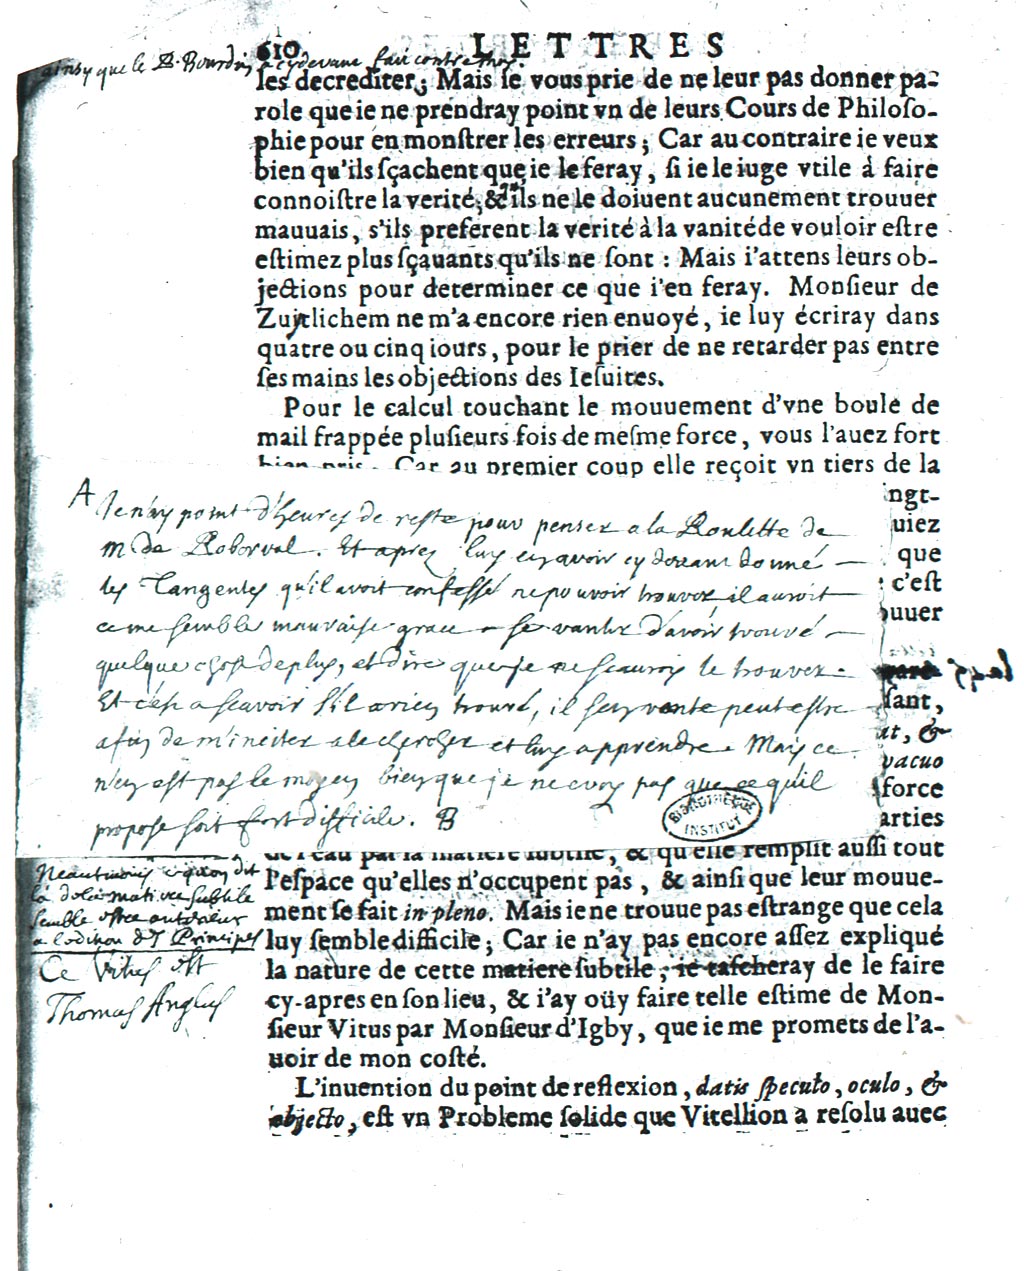 610 LETTRES
ainsy que le P. Bourdin a cy devant fait contre moy.
les decrediter; Mais ie vous prie de ne leur pas donner pa-
role que ie ne prendray point vn de leurs Cours de Philoſo-
phie pour en monſtrer les erreurs; Car au contraire ie veux
bien qu'ils ſçachent que ie le feray, ſi ie le iuge vtile à faire
connoiſtre la verité, & ils ne le doiuent aucunement trouuer
mauuais, s'ils preferent la verité à la vanité de vouloir eſtre
eſtimez plus ſçauants qu'ils ne ſont : Mais i'attens leurs ob-
jections pour determiner ce que i'en feray. Monſieur de
Zuytlichem ne m'a encore rien enuoyé, ie luy écriray dans
quatre ou cinq iours, pour le prier de ne retarder pas entre
ſes mains les objections des Ieſuites.
Pour le calcul touchant le mouuement d'vne boule de
mail frappée pluſieurs fois de meſme force, vous l'auez fort
bien pris. Car au premier coup elle reçoit vn tiers de la
ngt-
uiez
que
c'eſt
ouuer
ſant,
ut, &
vacuo
force
arties
A Je n'ay point d'heures de reste pour penser a la Roulette de
M. de Roberval. Et aprez luy en avoir cy devant donné
les Tangentes qu'il avoit confessé ne pouvoir trouver il auroit
ce me semble mauvaise grace a se vanter d'avoir trouvé
quelque chose de plus, et dire que je ne scaurois le trouver.
Et c'est a scavoir s'il a rien trouvé, il s'en vante peut estre
afin de m'inciter a le chercher et luy apprendre. Mais ce
n'en est pas le moyen bien que je ne croy pas que ce qu'il
propose soit fort difficile. B
BIBLIOTHEQUE
INSTITUT
de l'eau par la matiere ſubtile, & qu'elle remplit auſſi tout
l'eſpace qu'elles n'occupent pas, & ainſi que leur mouue-
ment ſe fait in pleno. Mais ie ne trouue pas eſtrange que cela
luy ſemble difficile; Car ie n'ay pas encore aſſez expliqué
la nature de cette matiere ſubtile; ie taſcheray de le faire
cy-apres en ſon lieu, & i'ay oüy faire telle eſtime de Mon-
ſieur Vitus par Monſieur d'Igby, que ie me promets de l'a-
uoir de mon coſté.
L'inuention du point de reflexion, datis ſpeculo, oculo, &
objecto, eſt vn Probleme ſolide que Vitellion a reſolu auec
Neantmoins ce qu'on dit
la de la matiere subtile
semble estre anterieur
a l'edition des Principes
Ce Vitus est
Thomas Anglus